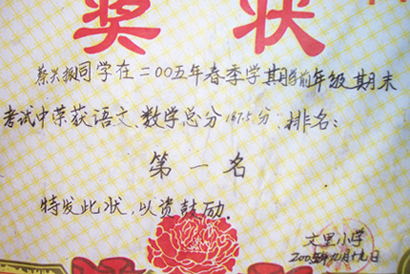 奖状
蔡兴报同学在二00五年春季学期学前年级期末
考试中荣获语文、数学总分187.5分、排名:
第一名
特发此状,以资鼓励.
文里小学